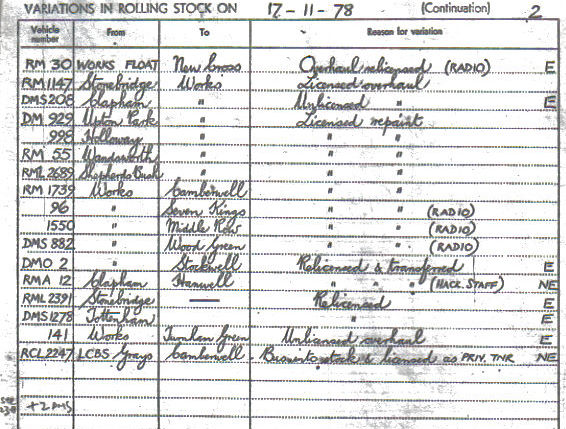 VARIATIONS IN ROLLING STOCK ON 17-11-78 (Continuation) 2
Vehicle number From To Reason for variation
RM 30 WORKS FLOAT New Cross Overhaul relicensed (RADIO) E
RM 1147 Stonebridge Works Licensed overhaul
DMS 208 Clapham " Unlicensed " E
DM 929 Upton Park " Licensed repaint
998 Holloway " " "
RM 55 Wandsworth " " "
RML 2689 Shepherds Bush " " "
RM 1739 Works Camberwell " "
96 " Seven Kings " " (RADIO)
1550 " Middle Row " " (RADIO)
DMS 882 " Wood Green " " (RADIO)
DMO 2 " Stockwell Relicensed & transferred E
RMA 12 Clapham Hanwell " " " (HACK. STAFF) NE
RML 2391 Stonebridge — Relicensed E
DMS 1278 Tottenham " E
141 Works Turnham Green Unlicensed overhaul E
RCL 2247 LCBS Grays Camberwell stock & licensed as PRIV. TNR NE
+2 DMS